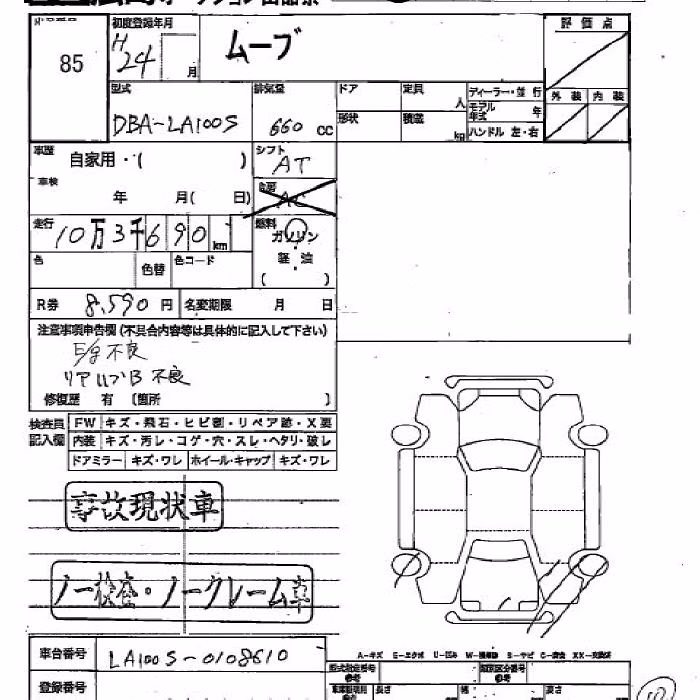 初度登録年月
評価点
85
H24
月
ムーブ
型式
排気量
ドア
定員
ディーラー・並行
外装 内装
DBA-LA100S
660 cc
人
モデル年式
年
形状
積載
kg
ハンドル 左・右
車歴
自家用・( )
シフト
AT
車検
年 月( 日)
走行
10万3千690km
燃料
ガソリン
軽油
( )
色
色替
色コード
R券 8,590円
名変期限 月 日
注意事項申告欄(不具合内容等は具体的に記入して下さい)
E/g不良
リアハブB不良
修復歴 有 〔箇所 〕
検査員記入欄
FW キズ・飛石・ヒビ割・リペア跡・X要
内装 キズ・汚レ・コゲ・穴・スレ・ヘタリ・破レ
ドアミラー キズ・ワレ ホイール・キャップ キズ・ワレ
事故現状車
ノー検査・ノークレーム車
車台番号
LA100S-0108610
A-キズ E-エクボ U-凹み
登録番号
長さ
幅
高さ